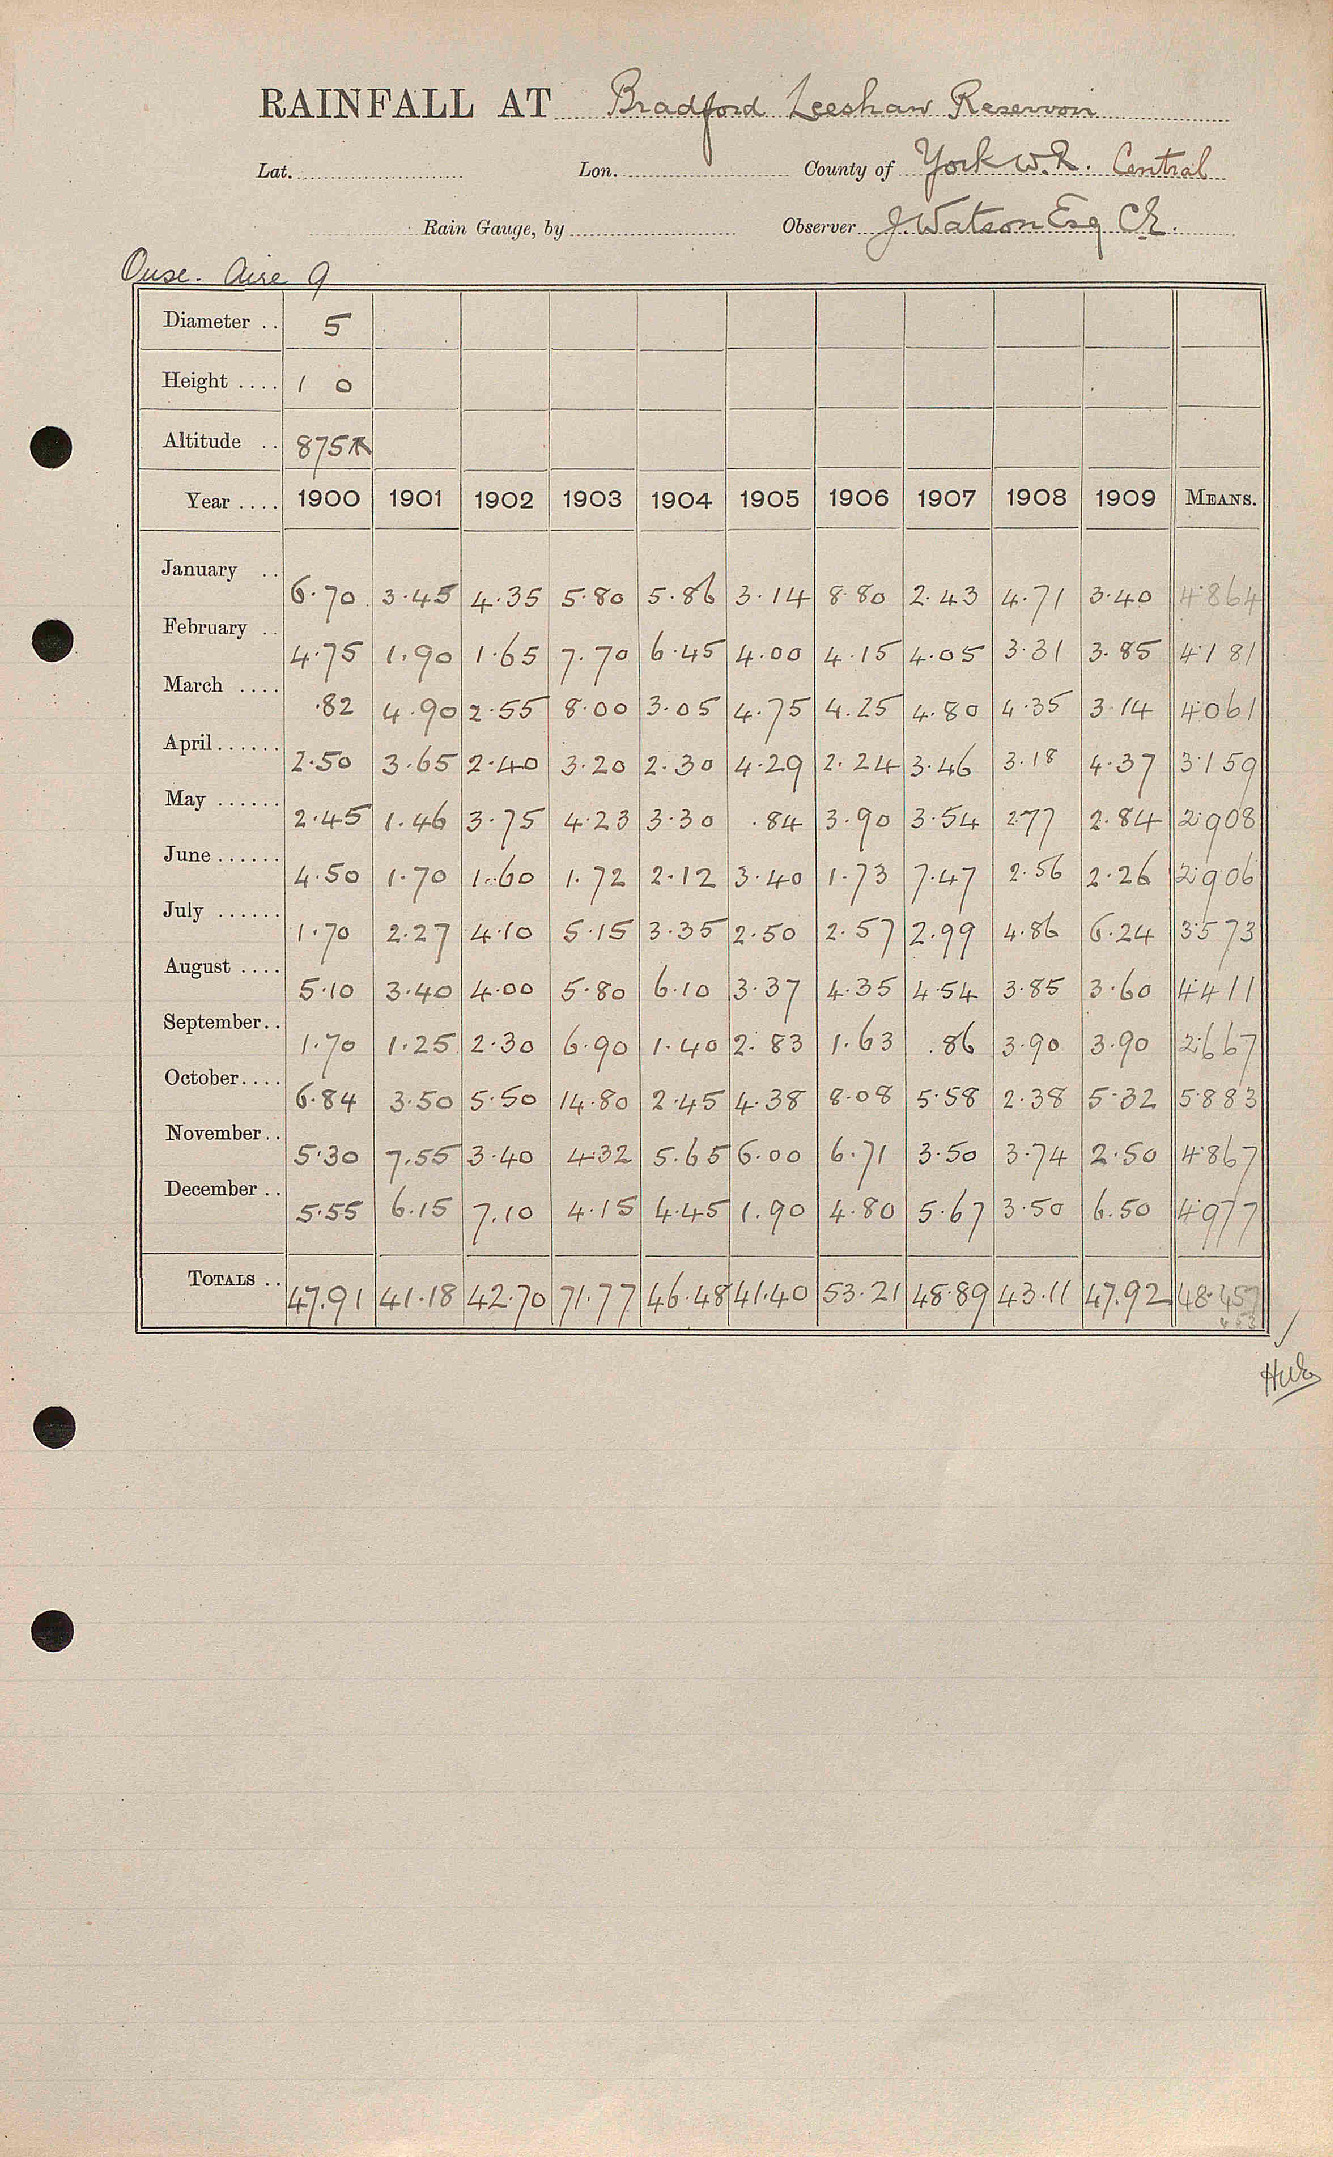 RAINFALL AT Bradford Leeshaw Reservoir
Lat. Lon. County of York W.R. Central
Rain Gauge, by Observer J. Watson Esq CE.
Ouse. Aire 9
Diameter .. 5
Height .... 1 0
Altitude .. 875
Year .... 1900 1901 1902 1903 1904 1905 1906 1907 1908 1909 MEANS.
January .. 6.70 3.45 4.35 5.80 5.86 3.14 8.80 2.43 4.71 3.40 4.864
February .. 4.75 1.90 1.65 7.70 6.45 4.00 4.15 4.05 3.31 3.85 4.181
March .... .82 4.90 2.55 8.00 3.05 4.75 4.25 4.80 4.35 3.14 4.061
April ...... 2.50 3.65 2.40 3.20 2.30 4.29 2.24 3.46 3.18 4.37 3.159
May ...... 2.45 1.46 3.75 4.23 3.30 .84 3.90 3.54 2.77 2.84 2.908
June ...... 4.50 1.70 1.60 1.72 2.12 3.40 1.73 7.47 2.56 2.26 2.906
July ...... 1.70 2.27 4.10 5.15 3.35 2.50 2.57 2.99 4.86 6.24 3.573
August .... 5.10 3.40 4.00 5.80 6.10 3.37 4.35 4.54 3.85 3.60 4.411
September .. 1.70 1.25 2.30 6.90 1.40 2.83 1.63 .86 3.90 3.90 2.667
October .... 6.84 3.50 5.50 14.80 2.45 4.38 8.08 5.58 2.38 5.32 5.883
November .. 5.30 7.55 3.40 4.32 5.65 6.00 6.71 3.50 3.74 2.50 4.867
December .. 5.55 6.15 7.10 4.15 4.45 1.90 4.80 5.67 3.50 6.50 4.977
TOTALS .. 47.91 41.18 42.70 71.77 46.48 41.40 53.21 48.89 43.11 47.92 48.457